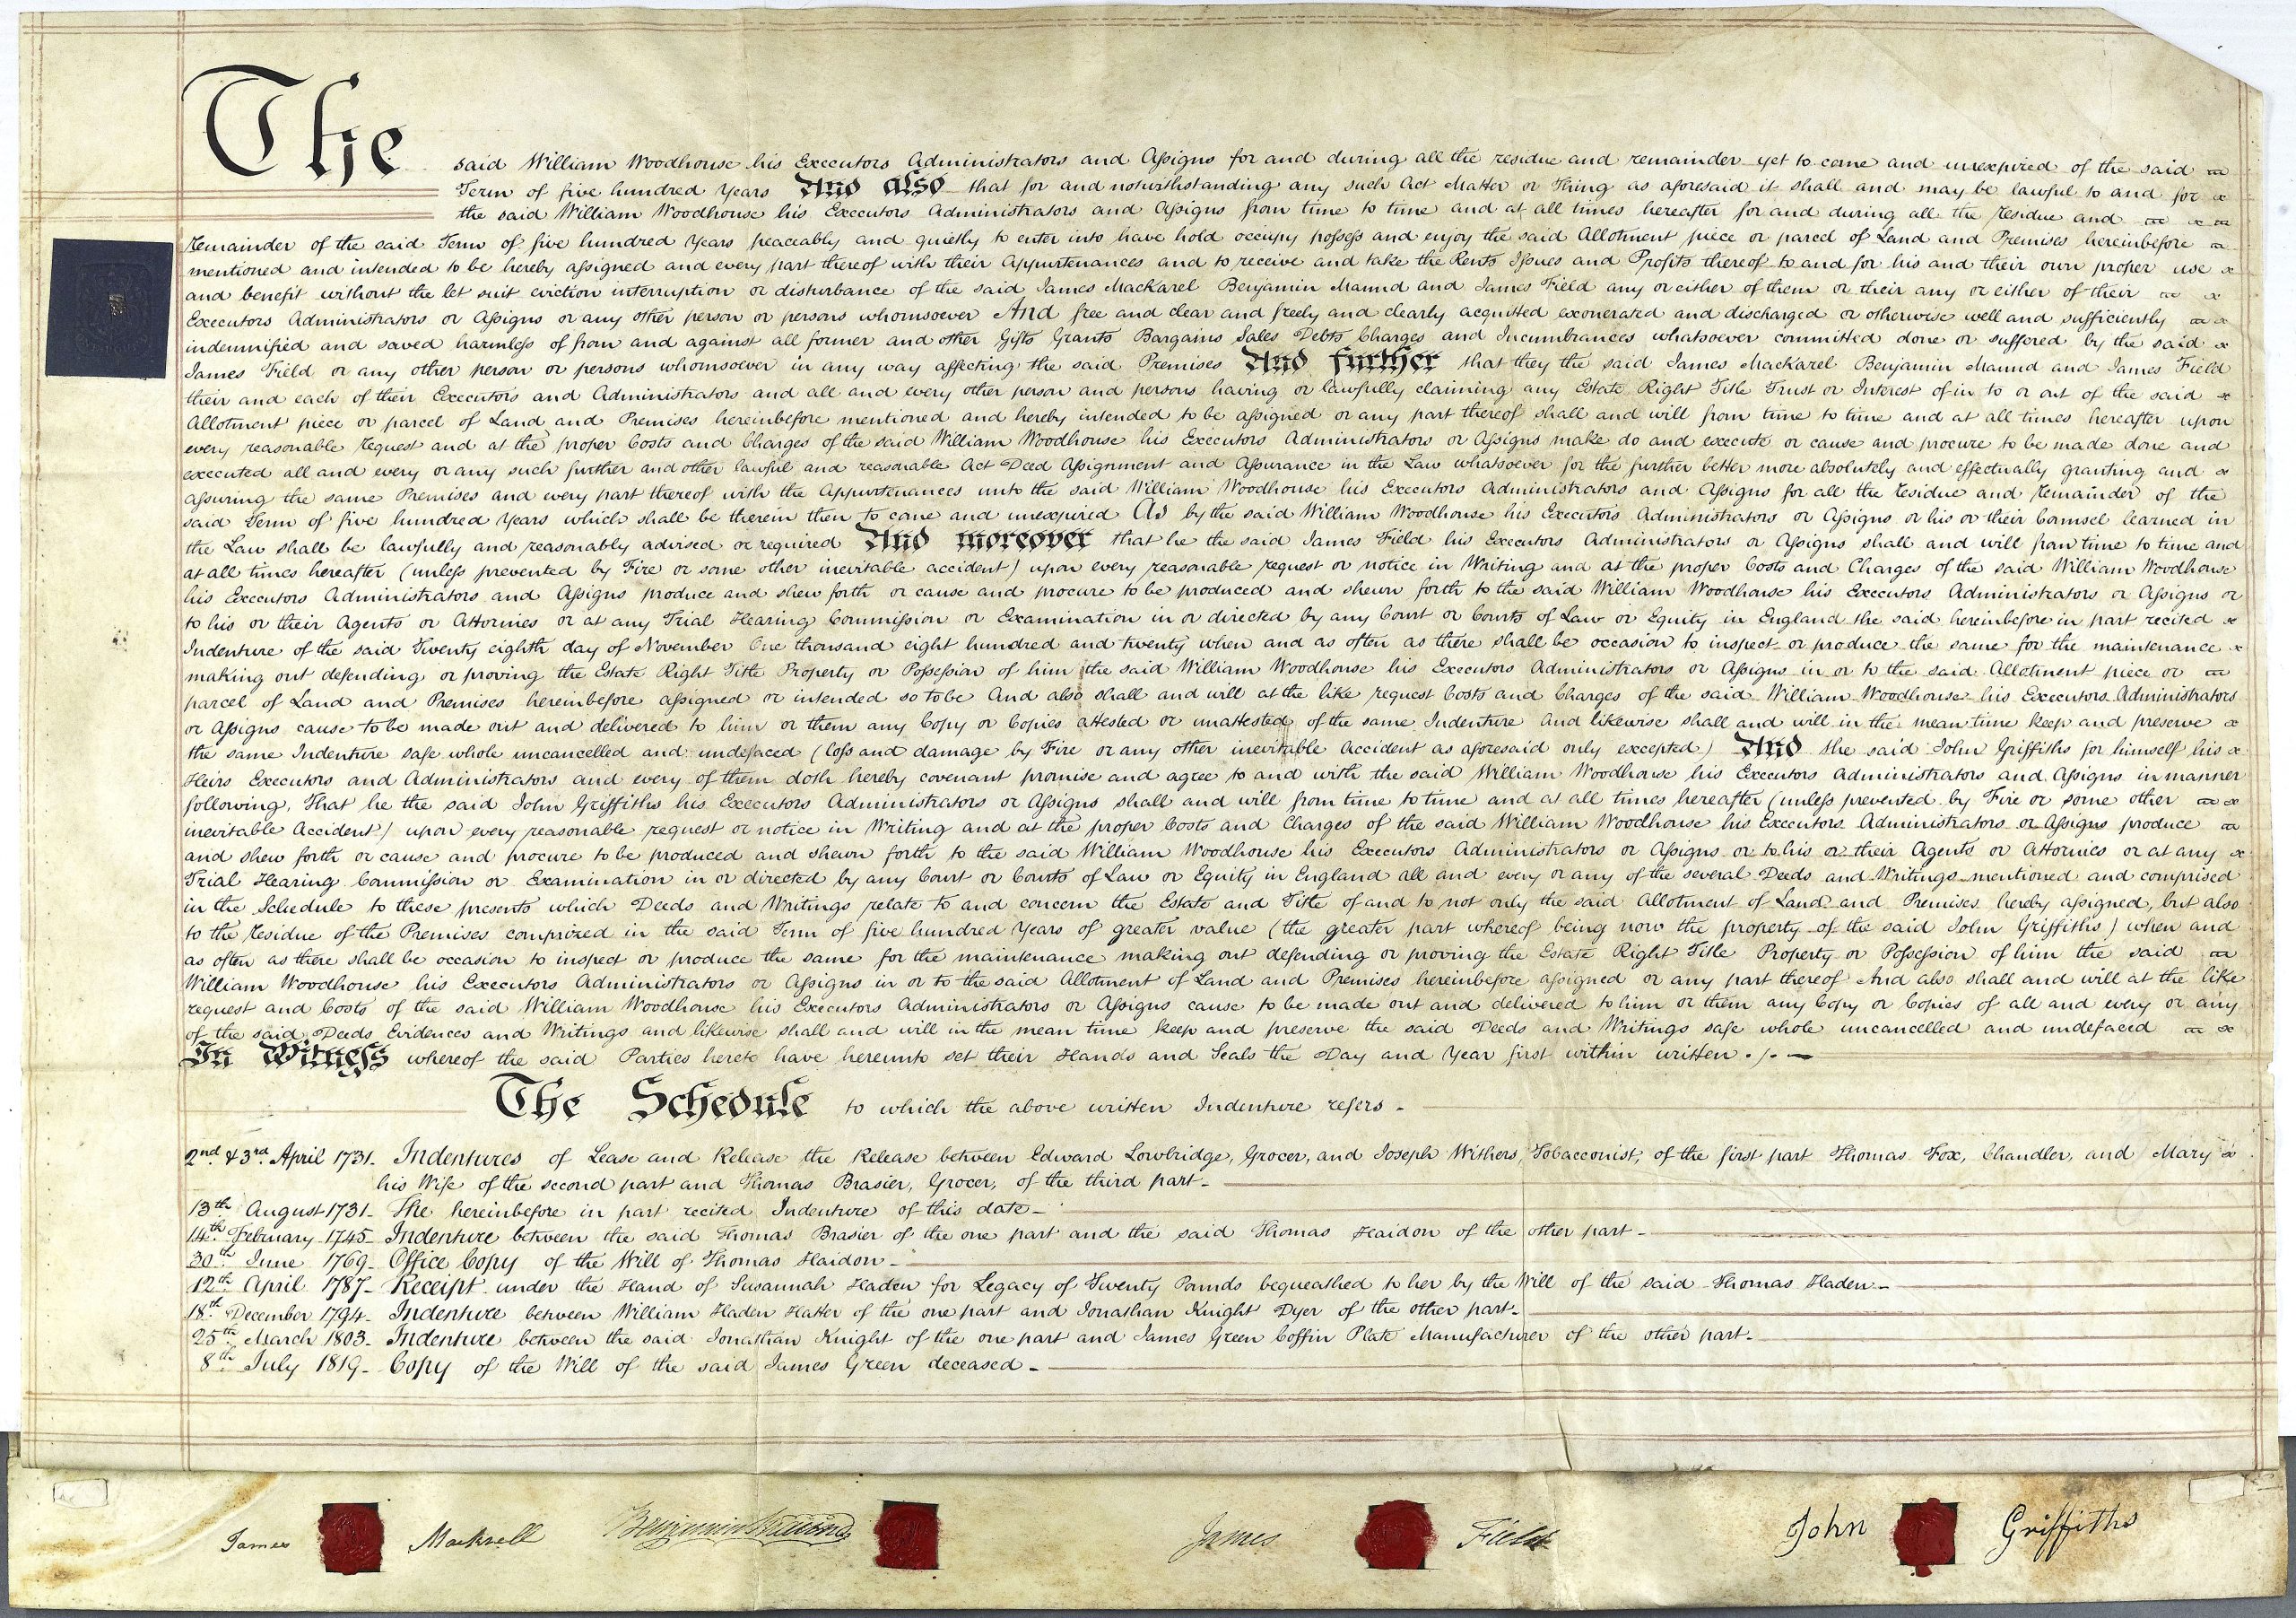 The said William Woodhouse his Executors Administrators and Assigns for and during all the residue and remainder yet to come and unexpired of the said
Term of five hundred Years And also that for and notwithstanding any such Act Matter or Thing as aforesaid it shall and may be lawful to and for
the said William Woodhouse his Executors Administrators and Assigns from time to time and at all times hereafter for and during all the Residue and
Remainder of the said Term of five hundred Years peaceably and quietly to enter into have hold occupy possess and enjoy the said Allotment piece or parcel of Land and Premises hereinbefore
mentioned and intended to be hereby assigned and every part thereof with their Appurtenances and to receive and take the Rents Issues and Profits thereof to and for his and their own proper use
and benefit without the let suit eviction interruption or disturbance of the said James Mackarel Benjamin Maund and James Field any or either of them or their any or either of their
Executors Administrators or Assigns or any other person or persons whomsoever And free and clear and freely and clearly acquitted exonerated and discharged or otherwise well and sufficiently
indemnified and saved harmless of from and against all former and other Gifts Grants Bargains Sales Debts Charges and Incumbrances whatsoever committed done or suffered by the said
James Field or any other person or persons whomsoever in any way affecting the said Premises And further that they the said James Mackarel Benjamin Maund and James Field
their and each of their Executors and Administrators and all and every other person and persons having or lawfully claiming any Estate Right Title Trust or Interest of in to or out of the said
Allotment piece or parcel of Land and Premises hereinbefore mentioned and hereby intended to be assigned or any part thereof shall and will from time to time and at all times hereafter upon
every reasonable request and at the proper Costs and Charges of the said William Woodhouse his Executors Administrators or Assigns make do and execute or cause and procure to be made done and
executed all and every or any such further and other lawful and reasonable Act Deed Assignment and Assurance in the Law whatsoever for the further better more absolutely and effectually granting and
assuring the same Premises and every part thereof with the Appurtenances unto the said William Woodhouse his Executors Administrators and Assigns for all the Residue and Remainder of the
said Term of five hundred Years which shall be therein then to come and unexpired As by the said William Woodhouse his Executors Administrators or Assigns or his or their Counsel learned in
the Law shall be lawfully and reasonably advised or required And moreover that he the said James Field his Executors Administrators or Assigns shall and will from time to time and
at all times hereafter (unless prevented by Fire or some other inevitable accident) upon every reasonable request or notice in Writing and at the proper Costs and Charges of the said William Woodhouse
his Executors Administrators and Assigns produce and shew forth or cause and procure to be produced and shewn forth to the said William Woodhouse his Executors Administrators or Assigns or
to his or their Agents or Attornies or at any Trial Hearing Commission or Examination in or directed by any Court or Courts of Law or Equity in England the said hereinbefore in part recited
Indenture of the said Twenty eighth day of November One thousand eight hundred and twenty when and as often as there shall be occasion to inspect or produce the same for the maintenance
making out defending or proving the Estate Right Title Property or Possession of him the said William Woodhouse his Executors Administrators or Assigns in or to the said Allotment piece or
parcel of Land and Premises hereinbefore assigned or intended so to be And also shall and will at the like request Costs and Charges of the said William Woodhouse his Executors Administrators
or Assigns cause to be made out and delivered to him or them any Copy or Copies attested or unattested of the same Indenture And likewise shall and will in the mean time keep and preserve
the same Indenture safe whole uncancelled and undefaced (loss and damage by Fire or any other inevitable Accident as aforesaid only excepted) And the said John Griffiths for himself his
Heirs Executors and Administrators and every of them doth hereby covenant promise and agree to and with the said William Woodhouse his Executors Administrators and Assigns in manner
following, That he the said John Griffiths his Executors Administrators or Assigns shall and will from time to time and at all times hereafter (unless prevented by Fire or some other
inevitable Accident) upon every reasonable request or notice in Writing and at the proper Costs and Charges of the said William Woodhouse his Executors Administrators or Assigns produce
and shew forth or cause and procure to be produced and shewn forth to the said William Woodhouse his Executors Administrators or Assigns or to his or their Agents or Attornies or at any
Trial Hearing Commission or Examination in or directed by any Court or Courts of Law or Equity in England all and every or any of the several Deeds and Writings mentioned and comprised
in the Schedule to these presents which Deeds and Writings relate to and concern the Estate and Title of and to not only the said Allotment of Land and Premises hereby assigned, but also
to the Residue of the Premises comprized in the said Term of five hundred Years of greater value (the greater part whereof being now the property of the said John Griffiths) when and
as often as there shall be occasion to inspect or produce the same for the maintenance making out defending or proving the Estate Right Title Property or Possession of him the said
William Woodhouse his Executors Administrators or Assigns in or to the said Allotment of Land and Premises hereinbefore assigned or any part thereof And also shall and will at the like
request and Costs of the said William Woodhouse his Executors Administrators or Assigns cause to be made out and delivered to him or them any Copy or Copies of all and every or any
of the said Deeds Evidences and Writings and likewise shall and will in the mean time keep and preserve the said Deeds and Writings safe whole uncancelled and undefaced
In Witness whereof the said Parties hereto have hereunto set their Hands and Seals the Day and Year first within written.
The Schedule to which the above written Indenture refers -
2nd & 3rd April 1731 - Indentures of Lease and Release the Release between Edward Lowbridge, Grocer, and Joseph Withers, Tobacconist, of the first part Thomas Fox, Chandler, and Mary
his Wife of the second part and Thomas Brasier, Grocer, of the third part -
13th August 1731 - The hereinbefore in part recited Indenture of this date -
14th February 1745 - Indenture between the said Thomas Brasier of the one part and the said Thomas Haidon of the other part -
30th June 1769 - Office Copy of the Will of Thomas Haidon -
12th April 1787 - Receipt under the Hand of Susannah Haden for Legacy of Twenty Pounds bequeathed to her by the Will of the said Thomas Haden -
18th December 1794 - Indenture between William Haden Hatter of the one part and Jonathan Knight Dyer of the other part -
25th March 1803 - Indenture between the said Jonathan Knight of the one part and James Green Coffin Plate Manufacturer of the other part -
8th July 1819 - Copy of the Will of the said James Green deceased -
James Mackrell Benjamin Maund James Field John Griffiths